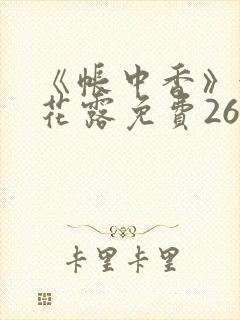 《帐中香》
花露免费26
卡里卡里